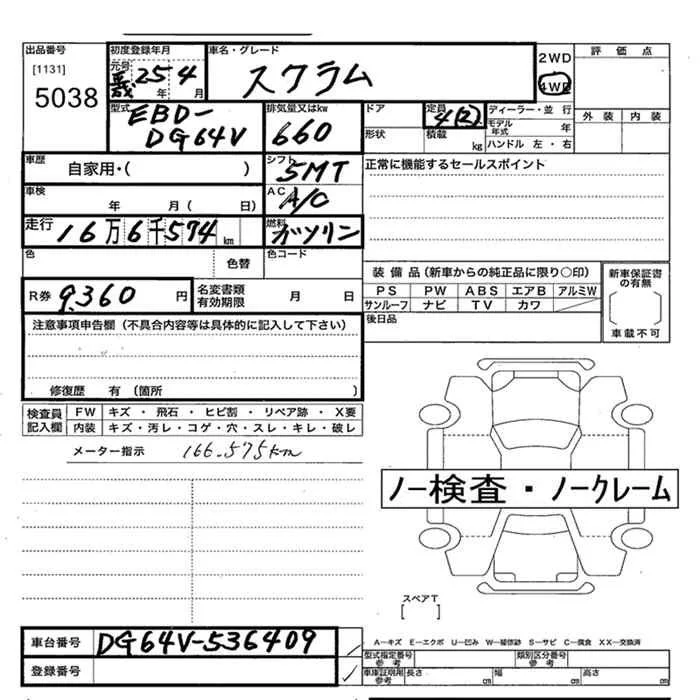 出品番号
[1131]
5038
初度登録年月
元号
25 年 4 月
車名・グレード
スクラム
2WD
4WD
評価点
外装 内装
型式
EBD-
DG64V
排気量又はkw
660
ドア
形状
定員
4(2)
積載 kg
ディーラー・並行
モデル年式 年
ハンドル 左・右
車歴
自家用・( )
シフト
5MT
正常に機能するセールスポイント
車検
年 月( 日)
AC
A/C
走行
16万6千574km
燃料
ガソリン
色
色替
色コード
装備品(新車からの純正品に限り○印)
PS PW ABS エアB アルミW
サンルーフ ナビ TV カワ
新車保証書の有無
車載不可
R券 9,360 円
名変書類有効期限 月 日
後日品
注意事項申告欄(不具合内容等は具体的に記入して下さい)
修復歴 有(箇所 )
検査員記入欄
FW キズ・飛石・ヒビ割・リペア跡・X要
内装 キズ・汚レ・コゲ・穴・スレ・キレ・破レ
メーター指示 166.575km
ノー検査・ノークレーム
スペアT
[ ]
A-キズ E-エクボ U-凹み W-補修跡 S-サビ C-腐食 XX-交換済
車台番号 DG64V-536409
型式指定番号参考
類別区分番号参考
登録番号
車庫証明用参考
長さ cm 幅 cm 高さ cm